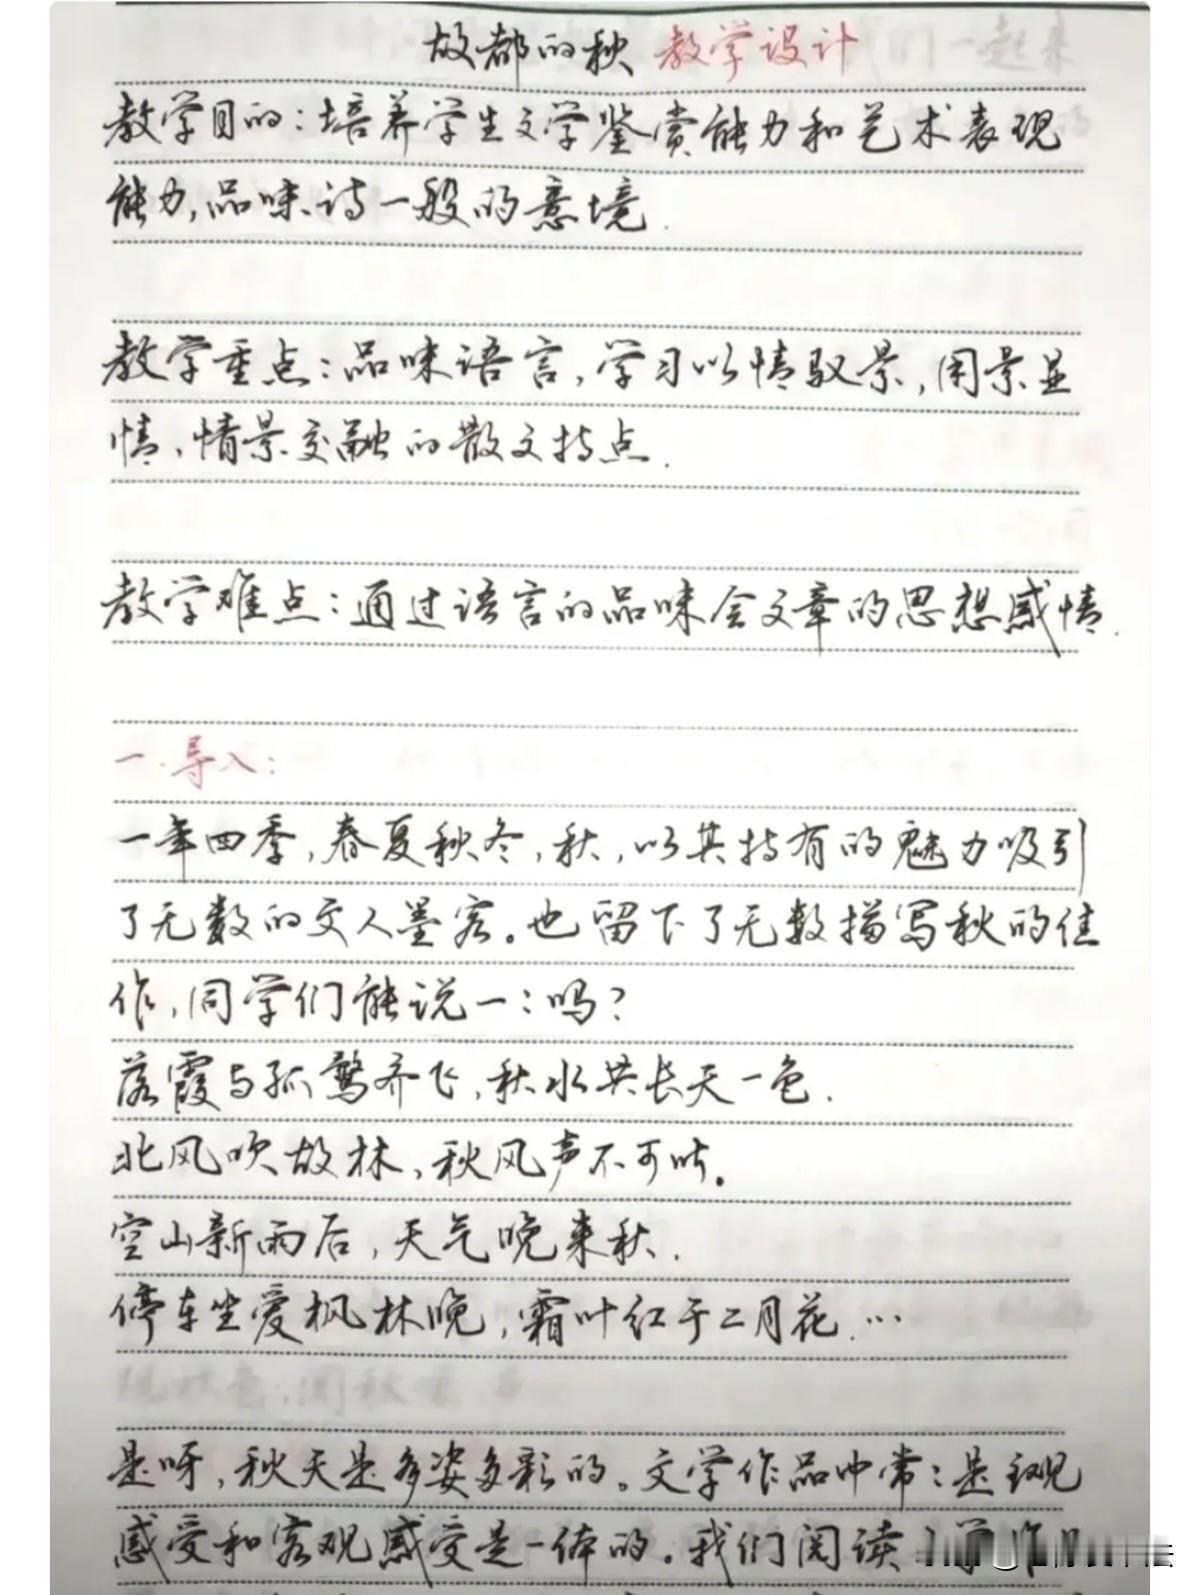 故都的秋 教学设计
教学目的：培养学生文学鉴赏能力和艺术表现
能力，品味诗一般的意境.
教学重点：品味语言，学习以情驭景，用景显
情，情景交融的散文特点.
教学难点：通过语言的品味会文章的思想感情.
一.导入：
一年四季，春夏秋冬，秋，以其特有的魅力吸引
了无数的文人墨客。也留下了无数描写秋的佳
作，同学们能说一：吗？
落霞与孤鹜齐飞，秋水共长天一色.
北风吹故林，秋风声不可听。
空山新雨后，天气晚来秋.
停车坐爱枫林晚，霜叶红于二月花…
是呀，秋天是多姿多彩的。文学作品中常：是观
感受和客观感受是一体的。我们阅读